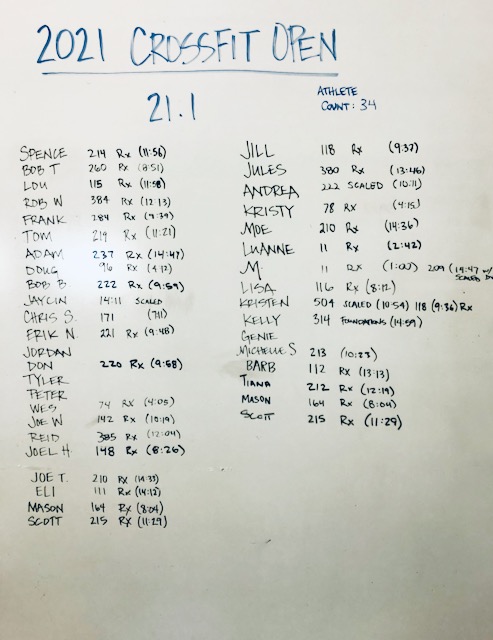 2021 CROSSFIT OPEN
21.1
ATHLETE
COUNT: 34
SPENCE 214 Rx (11:56)
BOB T 260 Rx (8:51)
LOU 115 Rx (11:58)
ROB W 384 Rx (12:13)
FRANK 284 Rx (9:39)
TOM 219 Rx (11:21)
ADAM 237 Rx (14:47)
DOUG 96 Rx (4:12)
BOB B. 222 Rx (9:59)
JAYCIN 14:11 SCALED
CHRIS S. 171 (711)
ERIK N. 221 Rx (9:48)
JORDAN
DON 220 Rx (9:58)
TYLER
PETER
WES 74 Rx (4:05)
JOE W 142 Rx (10:19)
REID 385 Rx (12:04)
JOEL H. 148 Rx (8:26)
JOE T. 210 Rx (14:33)
ELI 111 Rx (14:12)
MASON 164 Rx (8:04)
SCOTT 215 Rx (11:29)
JILL 118 Rx (9:37)
JULES 380 Rx (13:46)
ANDREA 222 SCALED (10:11)
KRISTY 78 Rx (4:15)
MOE 210 Rx (14:36)
LUANNE 11 Rx (2:42)
M. 11 Rx (1:00) 209 (14:47 w/
SCALED
LISA 116 Rx (8:12)
KRISTEN 504 SCALED (10:54) 118 (9:36) Rx
KELLY 314 FOUNDATIONS (14:59)
GENIE
MICHELLE S 213 (10:23)
BARB 112 Rx (13:13)
TIANA 212 Rx (12:19)
MASON 164 Rx (8:04)
SCOTT 215 Rx (11:29)